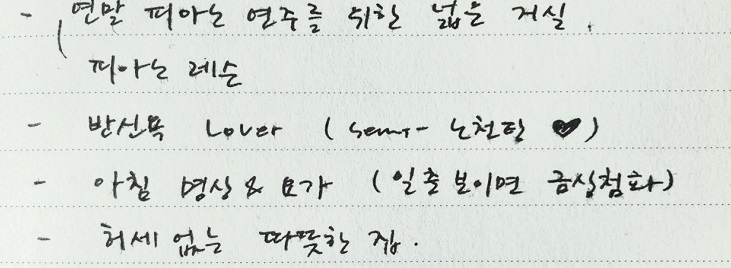 - 연말 피아노 연주를 위한 넓은 거실.
피아노 레슨
- 반신욕 Lover (semi- 노천탕 ♥)
- 아침 명상 & 요가 (일출 보이면 금상첨화)
- 허세 없는 따뜻한 집.